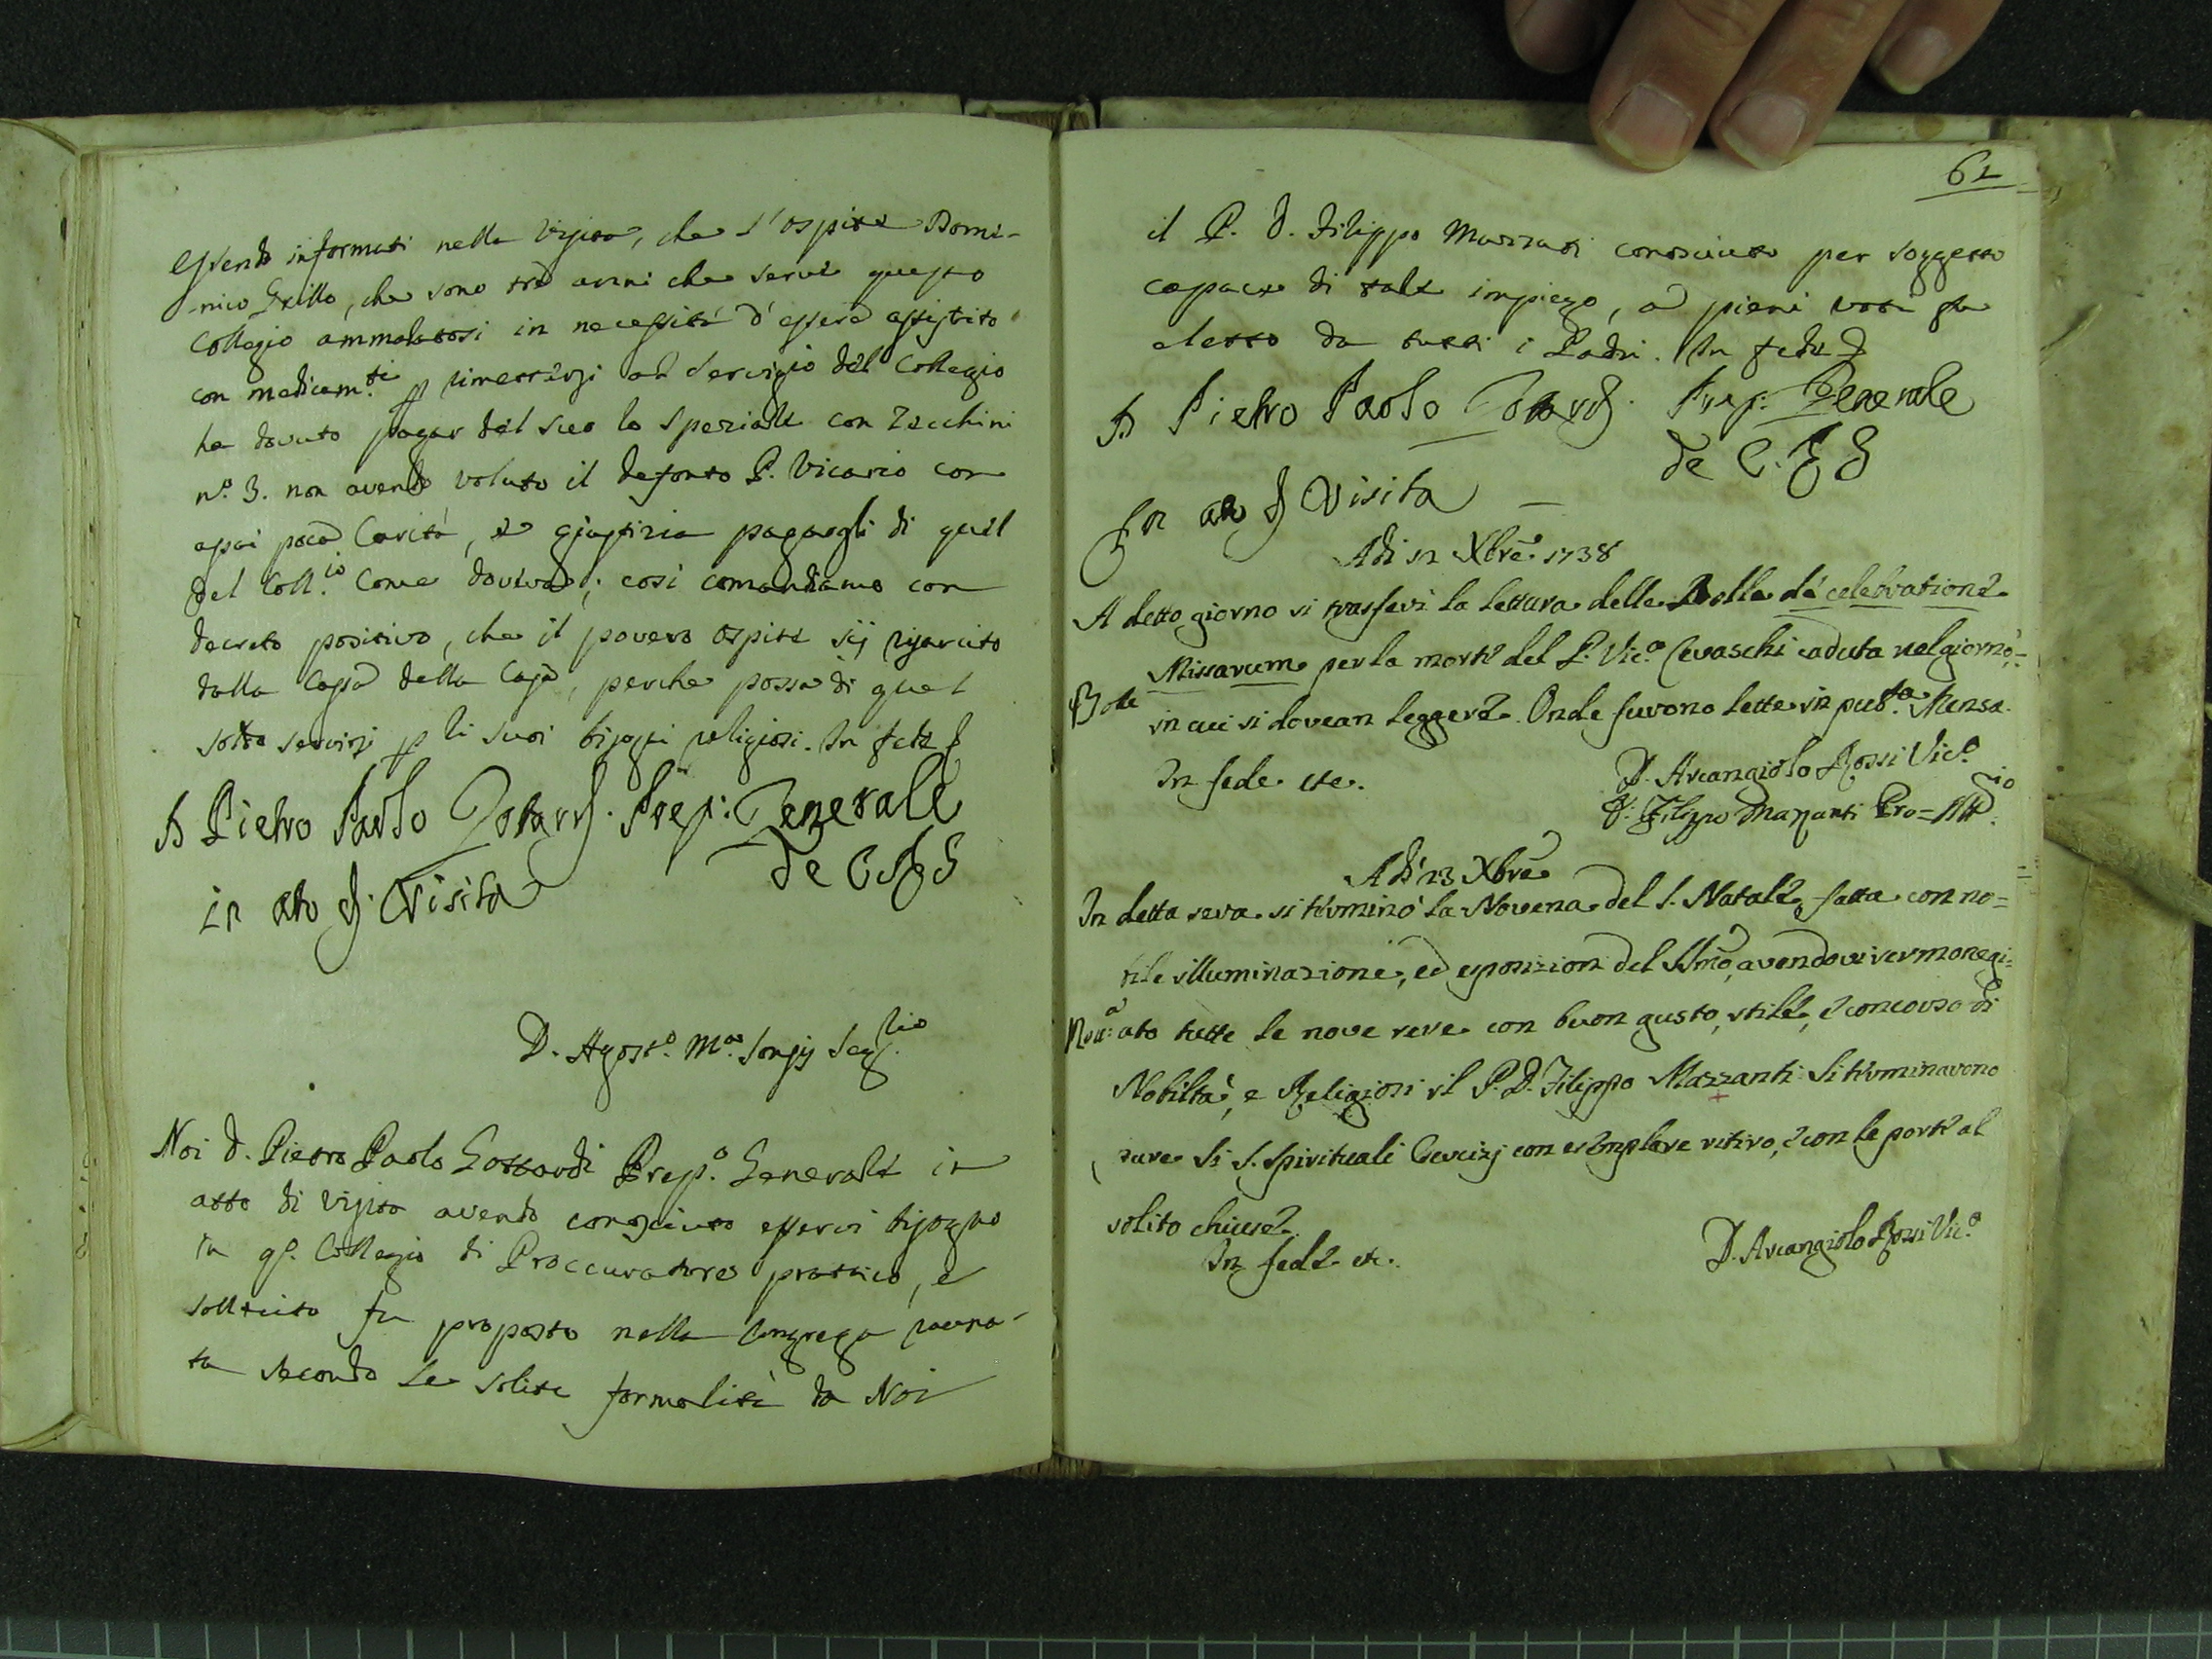 Essendo informati nella visita, che l'ospite Domi-
-nico Grillo, che sono trè anni che serve questo
Collegio ammalatosi in necessità d'essere assistito
con medicam.ti p rimettersi al servigio del Collegio
ha dovuto pagar del suo lo speziale con Zecchini
n.o 3. non avendo voluto il defonto P. Vicario con
assai poca Carità, e giustizia pagargli di quel
del Coll.io come doveva; così comandiamo con
decreto positivo, che il povero ospite sij risarcito
dalla Cassa della Casa, perche possa di quel
soldo servirsi p li suoi bisogni religiosi. In fede
D Pietro Paolo Gottardi Prep: Generale
de C S
in atto di Visita
D. Agost.o M.a Seg.rio
Noi D. Pietro Paolo Gottardi Prep.o Generale in
atto di visita avendo conosciuto esservi bisogno
in q.o Collegio di Proccuratore prattico, e
sollecito fu proposto nella Congrega rauna-
ta secondo le solite formalità da Noi
62
il P. D. Filippo Mazzanti conosciuto per soggetto
capace di tale impiego, a pieni voti fu
eletto da tutti i Padri. In fede
D Pietro Paolo Gottardi Prep: Generale
de C. S
In atto di Visita
Adi 12 Xbre 1738
A detto giorno si trasferi la lettura delle Bolle de celebratione
Missarum per la morte del P. Vic.o Cevaschi caduta nel giorno,
Bolle
in cui si dovean leggere. Onde furono lette in pub.ca Mensa.
In fede etc.
D. Arcangiolo Rossi Vic.o
D. Filippo Mazzanti Pro=Att.rio
Adi 23 Xbre
In detta sera si terminò la Novena del S. Natale, fatta con no=
bile illuminazione, ed esposizion del SSmo, avendovi sermonegi=
Nov.a
ato tutte le nove sere con buon gusto, stile, e concorso di
Nobiltà, e Religiosi il P. D. Filippo Mazzanti. Si terminarono
pure li S. Spirituali Esercizj con esemplare ritiro, e con le porte al
solito chiuse.
In fede etc.
D. Arcangiolo Rossi Vic.o